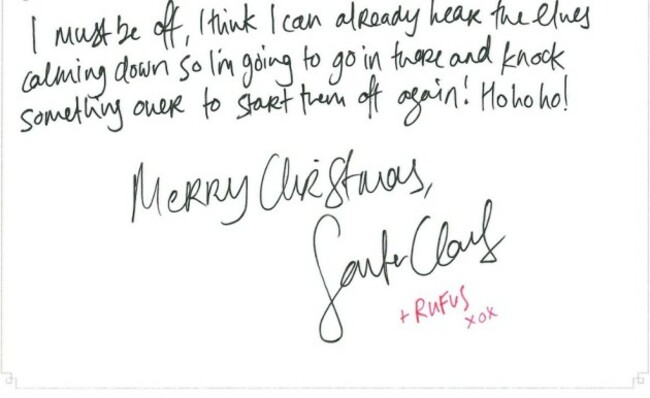 I must be off, I think I can already hear the elves
calming down so I'm going to go in there and knock
something over to start them off again! Hohoho!
Merry Christmas,
Santa Claus
+ RUFUS
xox